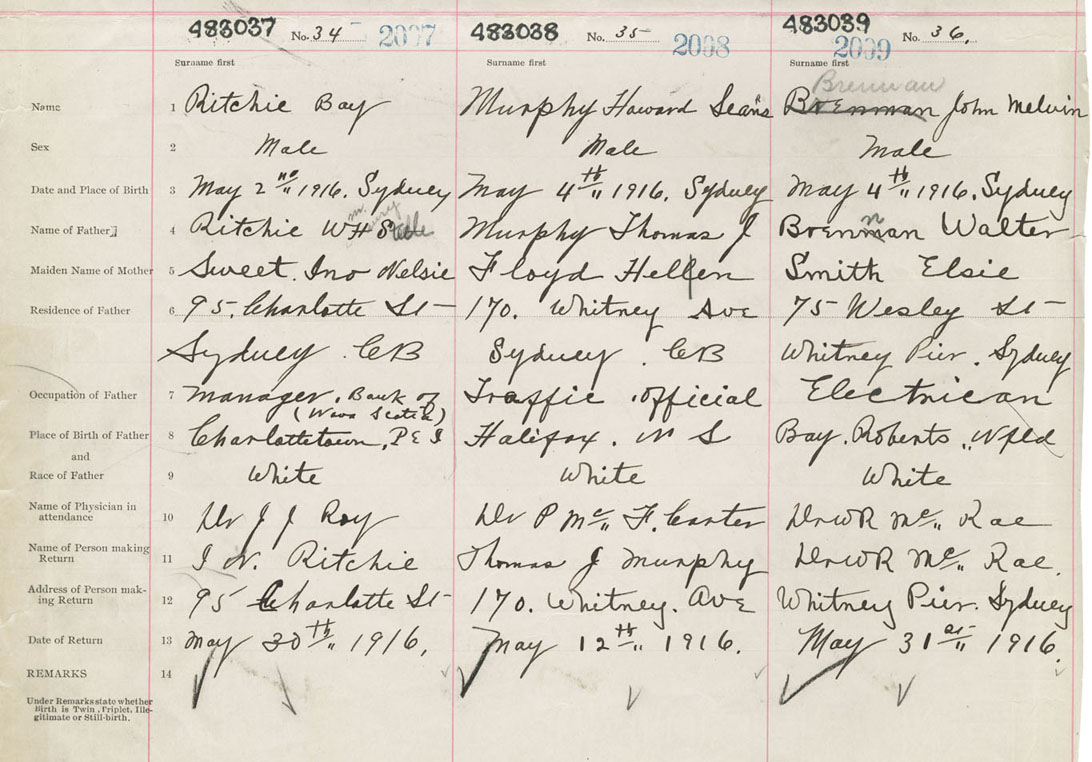 483037 No. 34 2007 483038 No. 35 2008 483039 No. 36. 2009
Surname first Surname first Surname first
Brennan
Name 1 Ritchie Bay Murphy Howard Sean's Brenman John Melvin
Sex 2 Male Male Male
Date and Place of Birth 3 May 2nd 1916. Sydney May 4th 1916. Sydney May 4th 1916. Sydney
Name of Father 4 Ritchie WH Murphy Thomas J Brennan Walter
Maiden Name of Mother 5 Sweet. Ino Nelsie Floyd Hellen Smith Elsie
Residence of Father 6 95. Charlotte St 170. Whitney Ave 75 Wesley St
Sydney. CB Sydney. CB Whitney Pier. Sydney
Occupation of Father 7 Manager. Bank of Traffic Official Electrican
(Nova Scotia)
Place of Birth of Father 8 Charlottetown, P E I Halifax. N S Bay. Roberts, Nfld
and
Race of Father 9 White White White
Name of Physician in
attendance 10 Dr J J Roy Dr P Mc. F. Carter Dr W R Mc. Rae
Name of Person making
Return 11 I N. Ritchie Thomas J Murphy Dr W R Mc. Rae.
Address of Person mak-
ing Return 12 95 Charlotte St 170. Whitney. Ave Whitney Pier. Sydney
Date of Return 13 May 30th 1916. May 12th 1916. May 31st 1916.
REMARKS 14
Under Remarks state whether
Birth is Twin, Triplet, Ille-
gitimate or Still-birth.